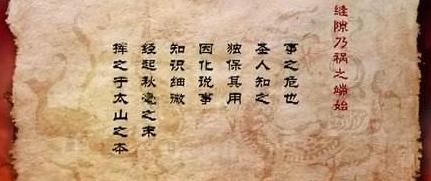 缝隙乃祸之端始
事之危也
圣人知之
独保其用
因化说事
知识细微
经起秋毫之末
挥之于太山之本